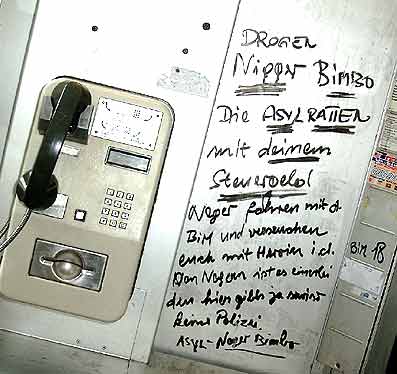 DROGEN
Niger BIMBO
Die ASYLRATTEN
mit deinem
Steuergeld
Neger fahren mit d.
BIM und verseuchen
euch mit Heroin i.d.
Den Negern ist es einerlei
den hier gibts ja
keine Polizei
ASYL-Neger Bimbo
BIM 18